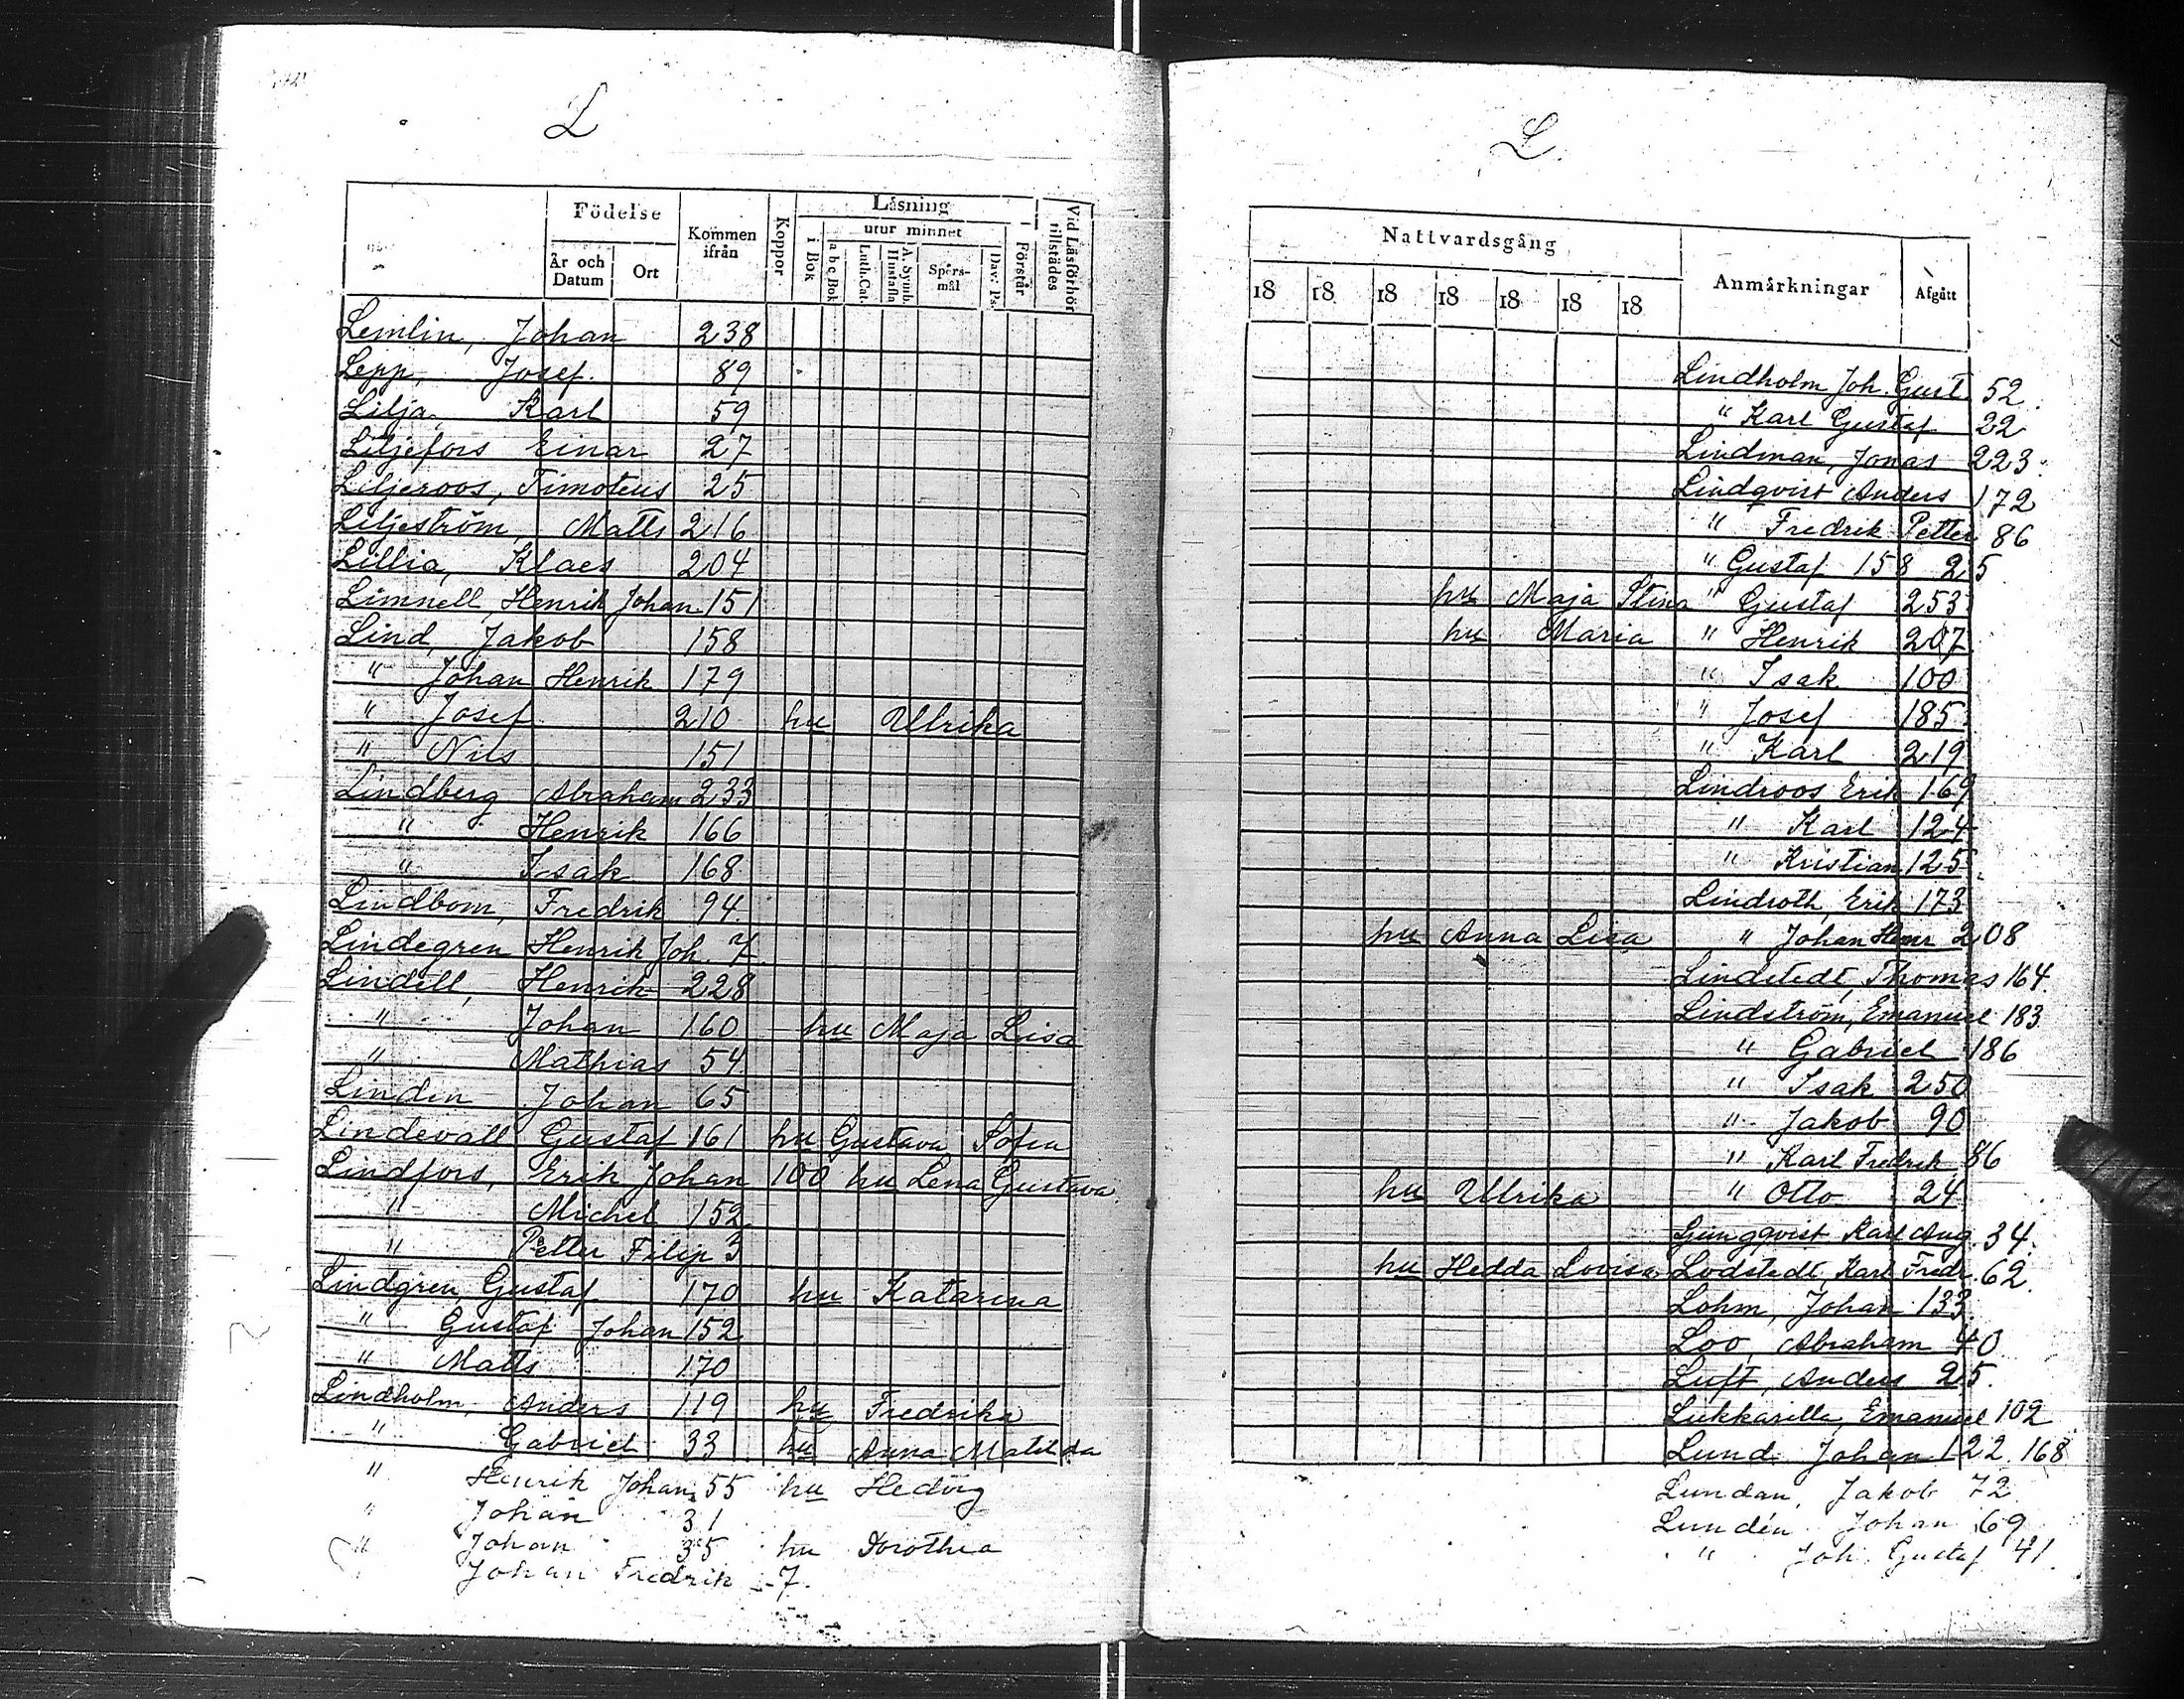 L
Födelse
Kommen ifrån
Koppor
Läsning
utur minnet
i Bok
a b c Bok
Luth. Cat.
A. Symb. Hustafla
Spörs-mål
Dav: Ps.
Förstår
Vid Läsförhör tillstädes
År och Datum
Ort
Lemlin, Johan 238
Lepp, Josef. 89
Lilja, Karl 59
Liljefors Einar 27
Liljeroos, Timoteus 25
Liljeström, Matts 216
Lillia, Klaes 204
Limnell, Henrik Johan 151
Lind, Jakob 158
" Johan Henrik 179
" Josef 210 hu Ulrika
" Nils 151
Lindberg Abraham 233
" Henrik 166
" Isak 168
Lindbom, Fredrik 94
Lindegren Henrik Joh. 7
Lindell, Henrik 228
" Johan 160 hu Maja Lisa
" Mathias 54
Linden Johan 65
Lindevall Gustaf 161 hu Gustava Sofia
Lindfors, Erik Johan 100 hu Lena Gustava
" Michel 152
" Petter Filip 3
Lindgren, Gustaf 170 hu Katarina
" Gustaf Johan 152
" Matts 170
Lindholm, Anders 119 hu Fredrika
" Gabriel 33 hu Anna Matilda
" Henrik Johan 55 hu Hedvig
" Johan 31
" Johan 35 hu Dorothea
" Johan Fredrik 7.
L.
Nattvardsgång
Anmärkningar
Afgått
18 18 18 18 18 18 18
Lindholm Joh. Gust. 52
" Karl Gustaf 22
Lindman, Jonas 223
Lindqvist Anders 172
" Fredrik Petter 86
" Gustaf 158 25
hu Maja Stina " Gustaf 253
hu Maria " Henrik 207
" Isak 100
" Josef 185
" Karl 219
Lindroos Erik 169
" Karl 124
" Kristian 125
Lindroth, Erik 173
hu Anna Lisa " Johan Henr 208
Lindstedt, Thomas 164
Lindström, Emanuel 183
" Gabriel 186
" Isak 250
" Jakob 90
" Karl Fredrik 86
hu Ulrika " Otto 24
Ljungqvist Karl Aug. 34
hu Hedda Lovisa Lodstedt, Karl Fredr. 62
Lohm, Johan 133
Loo, Abraham 40
Luft, Anders 25.
Lukkarilla, Emanuel 102
Lund Johan 122. 168
Lundan, Jakob 72
Lundén Johan 69
" Joh. Gustaf 41